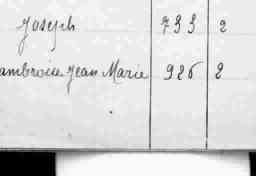 Joseph 793 2
ambroise Jean Marie 926 2